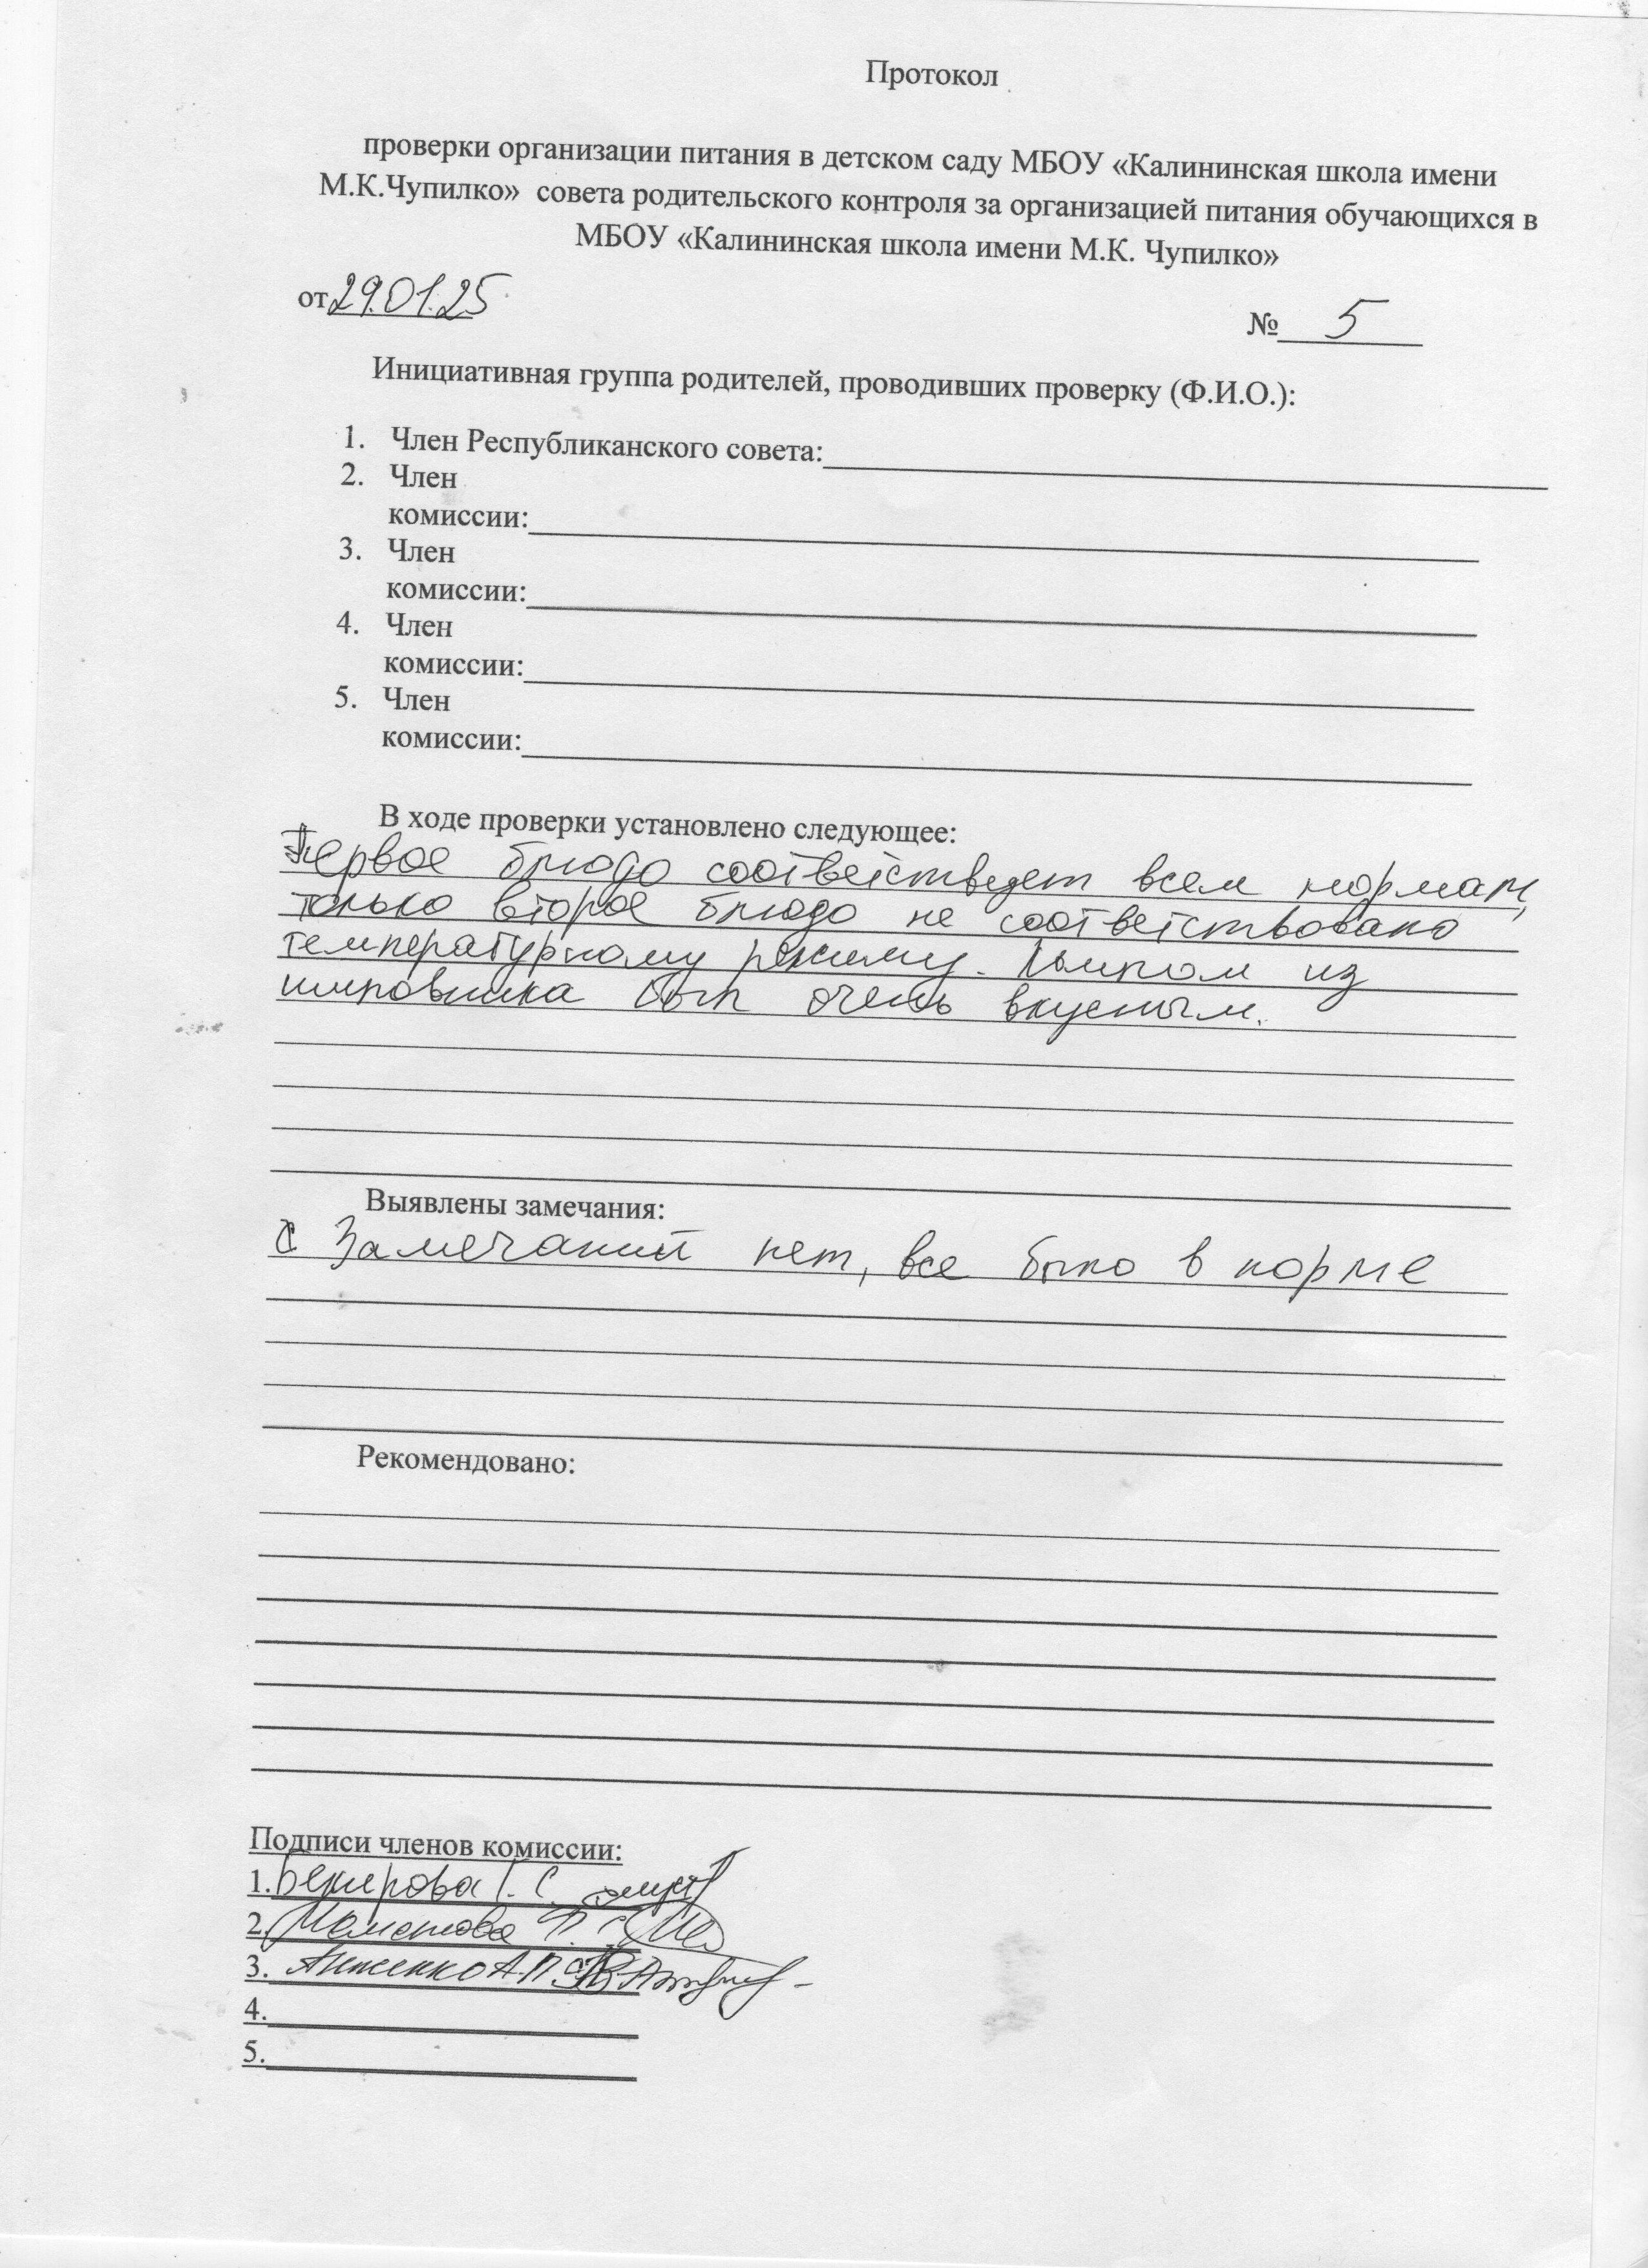 Протокол
проверки организации питания в детском саду МБОУ «Калининская школа имени
М.К.Чупилко» совета родительского контроля за организацией питания обучающихся в
МБОУ «Калининская школа имени М.К. Чупилко»
от 29.01.25
№ 5
Инициативная группа родителей, проводивших проверку (Ф.И.О.):
1. Член Республиканского совета:
2. Член
комиссии:
3. Член
комиссии:
4. Член
комиссии:
5. Член
комиссии:
В ходе проверки установлено следующее:
Первое блюдо соответствует всем нормам,
только второе блюдо не соответствовало
температурному режиму. из
шиповника был очень вкусным.
Выявлены замечания:
Замечаний нет, все было в норме
Рекомендовано:
Подписи членов комиссии:
1. Бекирова С.
2.
3. А.П.
4.
5.